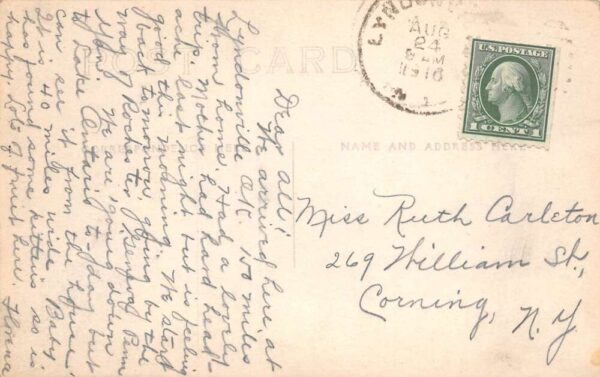 POST CARD
CORRESPONDENCE HERE
NAME AND ADDRESS HERE
LYNDON
AUG
24
AM
1916
U.S. POSTAGE
1 CENT 1
Dear all;
We arrived here at
Lyndonville O.K. 150 miles
from home. Had a lovely
trip. Mother had hard head-
ache last night but is feeling
good this morning. We start
back tomorrow going by the
way of Rochester, Penn
Yan. We are going down
to Lake Ontario to-day but
can see it from the house.
It is 40 miles wide. Baby
has found some kittens so is
happy. Lots of fruit here.
Miss Ruth Carleton
269 William St.,
Corning,
N.Y.